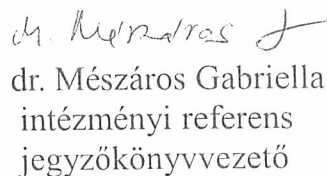 dr. Mészáros Gabriella
intézményi referens
jegyzőkönyvvezető